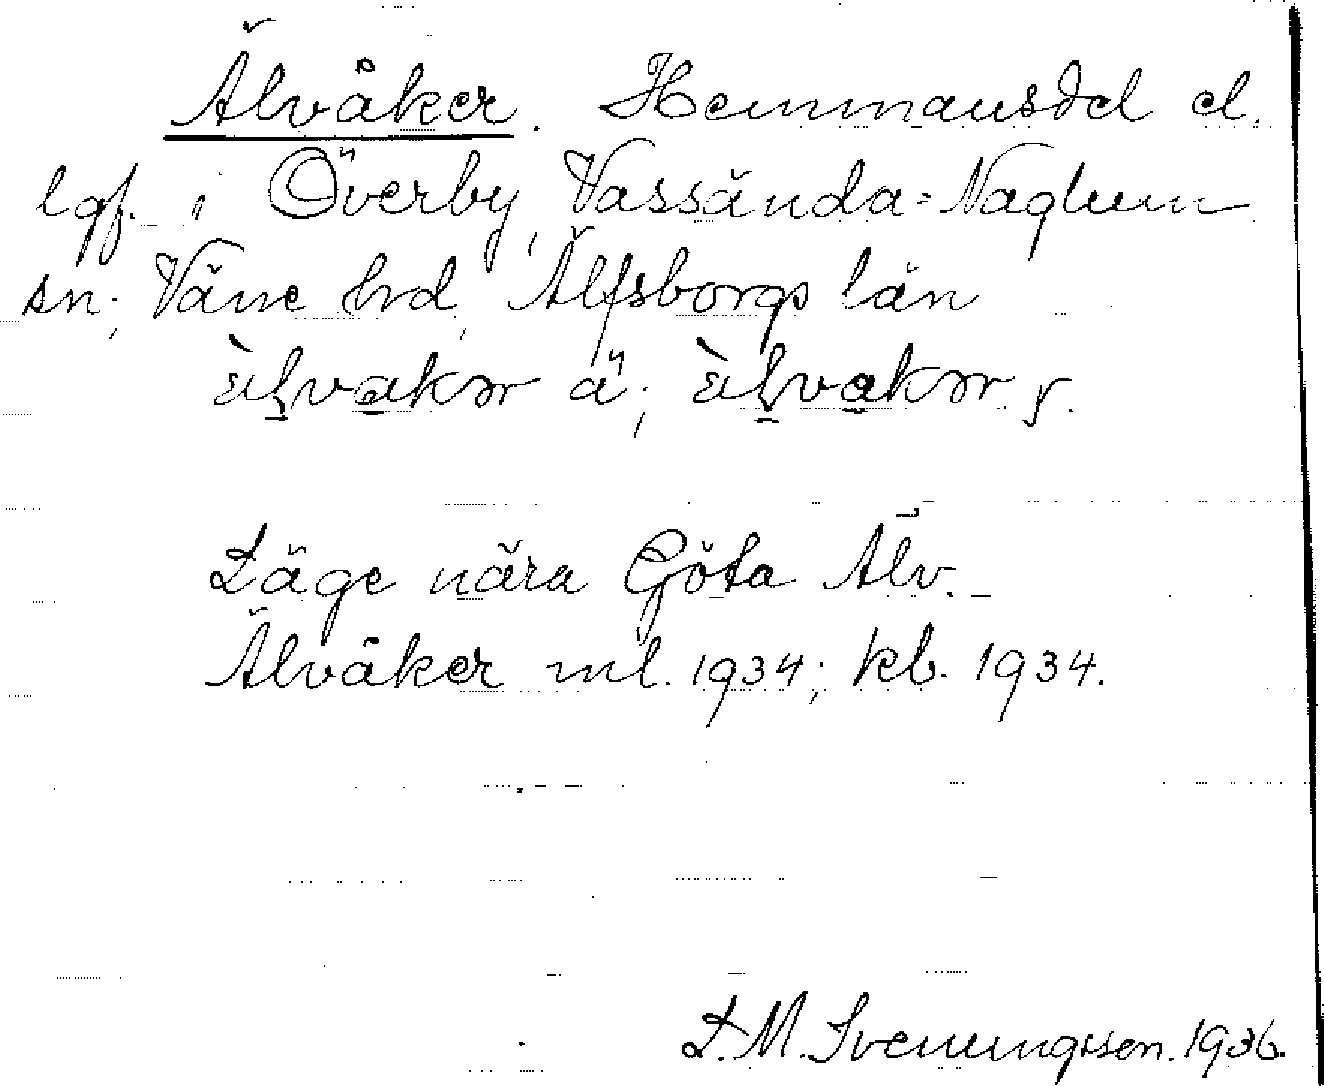 Älvåker. Hemmansdel el.
lgf. i Överby, Vassända=Naglum
sn; Väne hrd, Älfsborgs län
ä; y.
Läge nära Göta Älv.
Älvåker ml. 1934; kb. 1934.
L. M. Svenungsson. 1936.